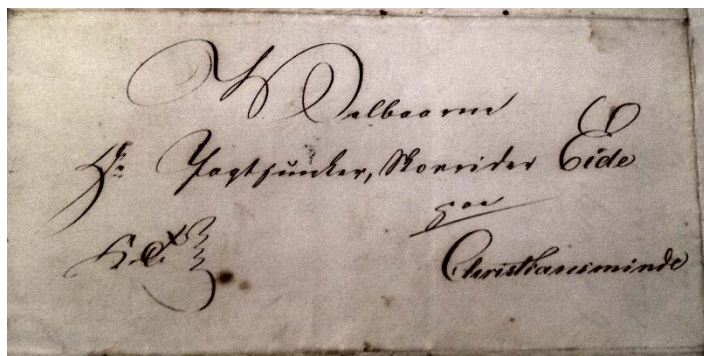 Velbaarne
Hr Jagtjunker, Skovrider Eide
paa
Christiansminde